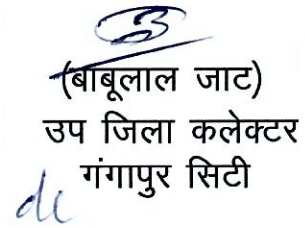 (बाबूलाल जाट)
उप जिला कलेक्टर
गंगापुर सिटी